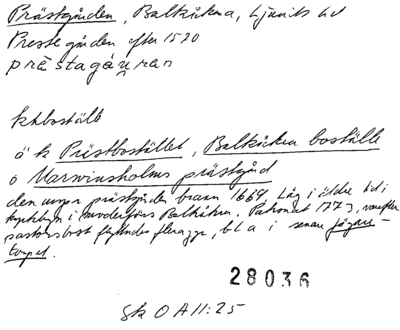 Prästgården, Balkåkra, Ljunits hd
Prestegården efter 1570
prästagåu̯ran
kkboställe
ä k Prästbostället, Balkåkra boställe
o Marsvinsholms prästgård
den urspr prästgården brann 1669. Låg i äldre tid i
kyrkbyn i moderförs Balkåkra. Patronat 1773, varefter
pastorsbost flyttades flera ggr, bl a i senare Jägare-
torpet.
28036
Sk OA 11:25